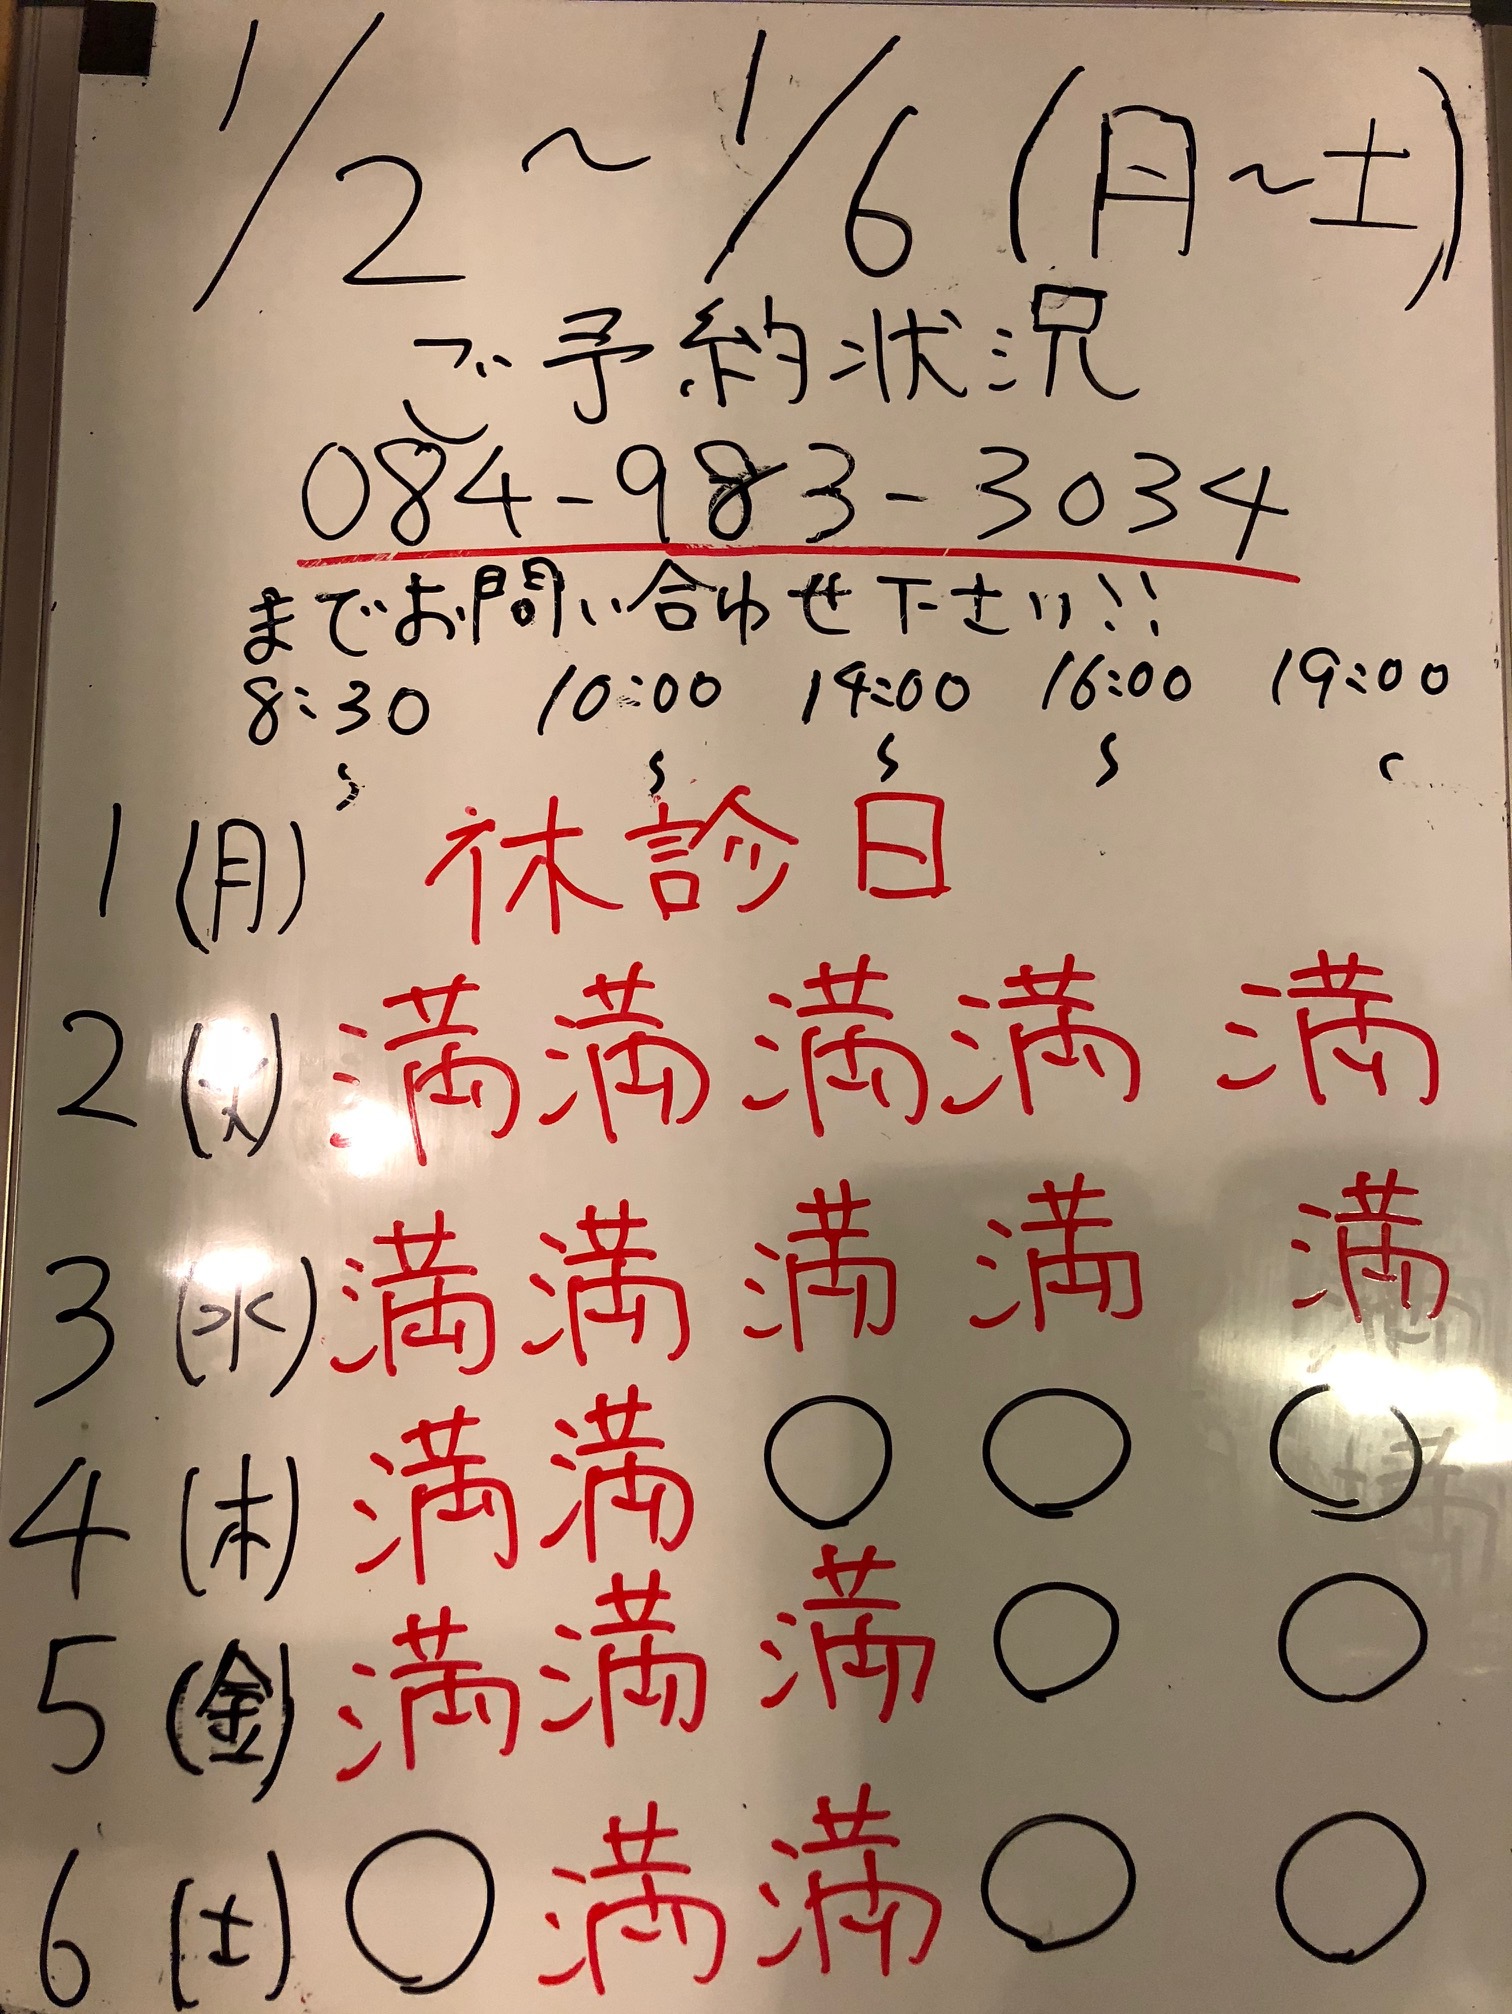 1/2～1/6(月～土)
ご予約状況
084-983-3034
までお問い合わせ下さい!!
8:30 10:00 14:00 16:00 19:00
～ ～ ～ ～ ～
1(月) 休診日
2(火) 満 満 満 満 満
3(水) 満 満 満 満 満
4(木) 満 満 ○ ○ ○
5(金) 満 満 満 ○ ○
6(土) ○ 満 満 ○ ○